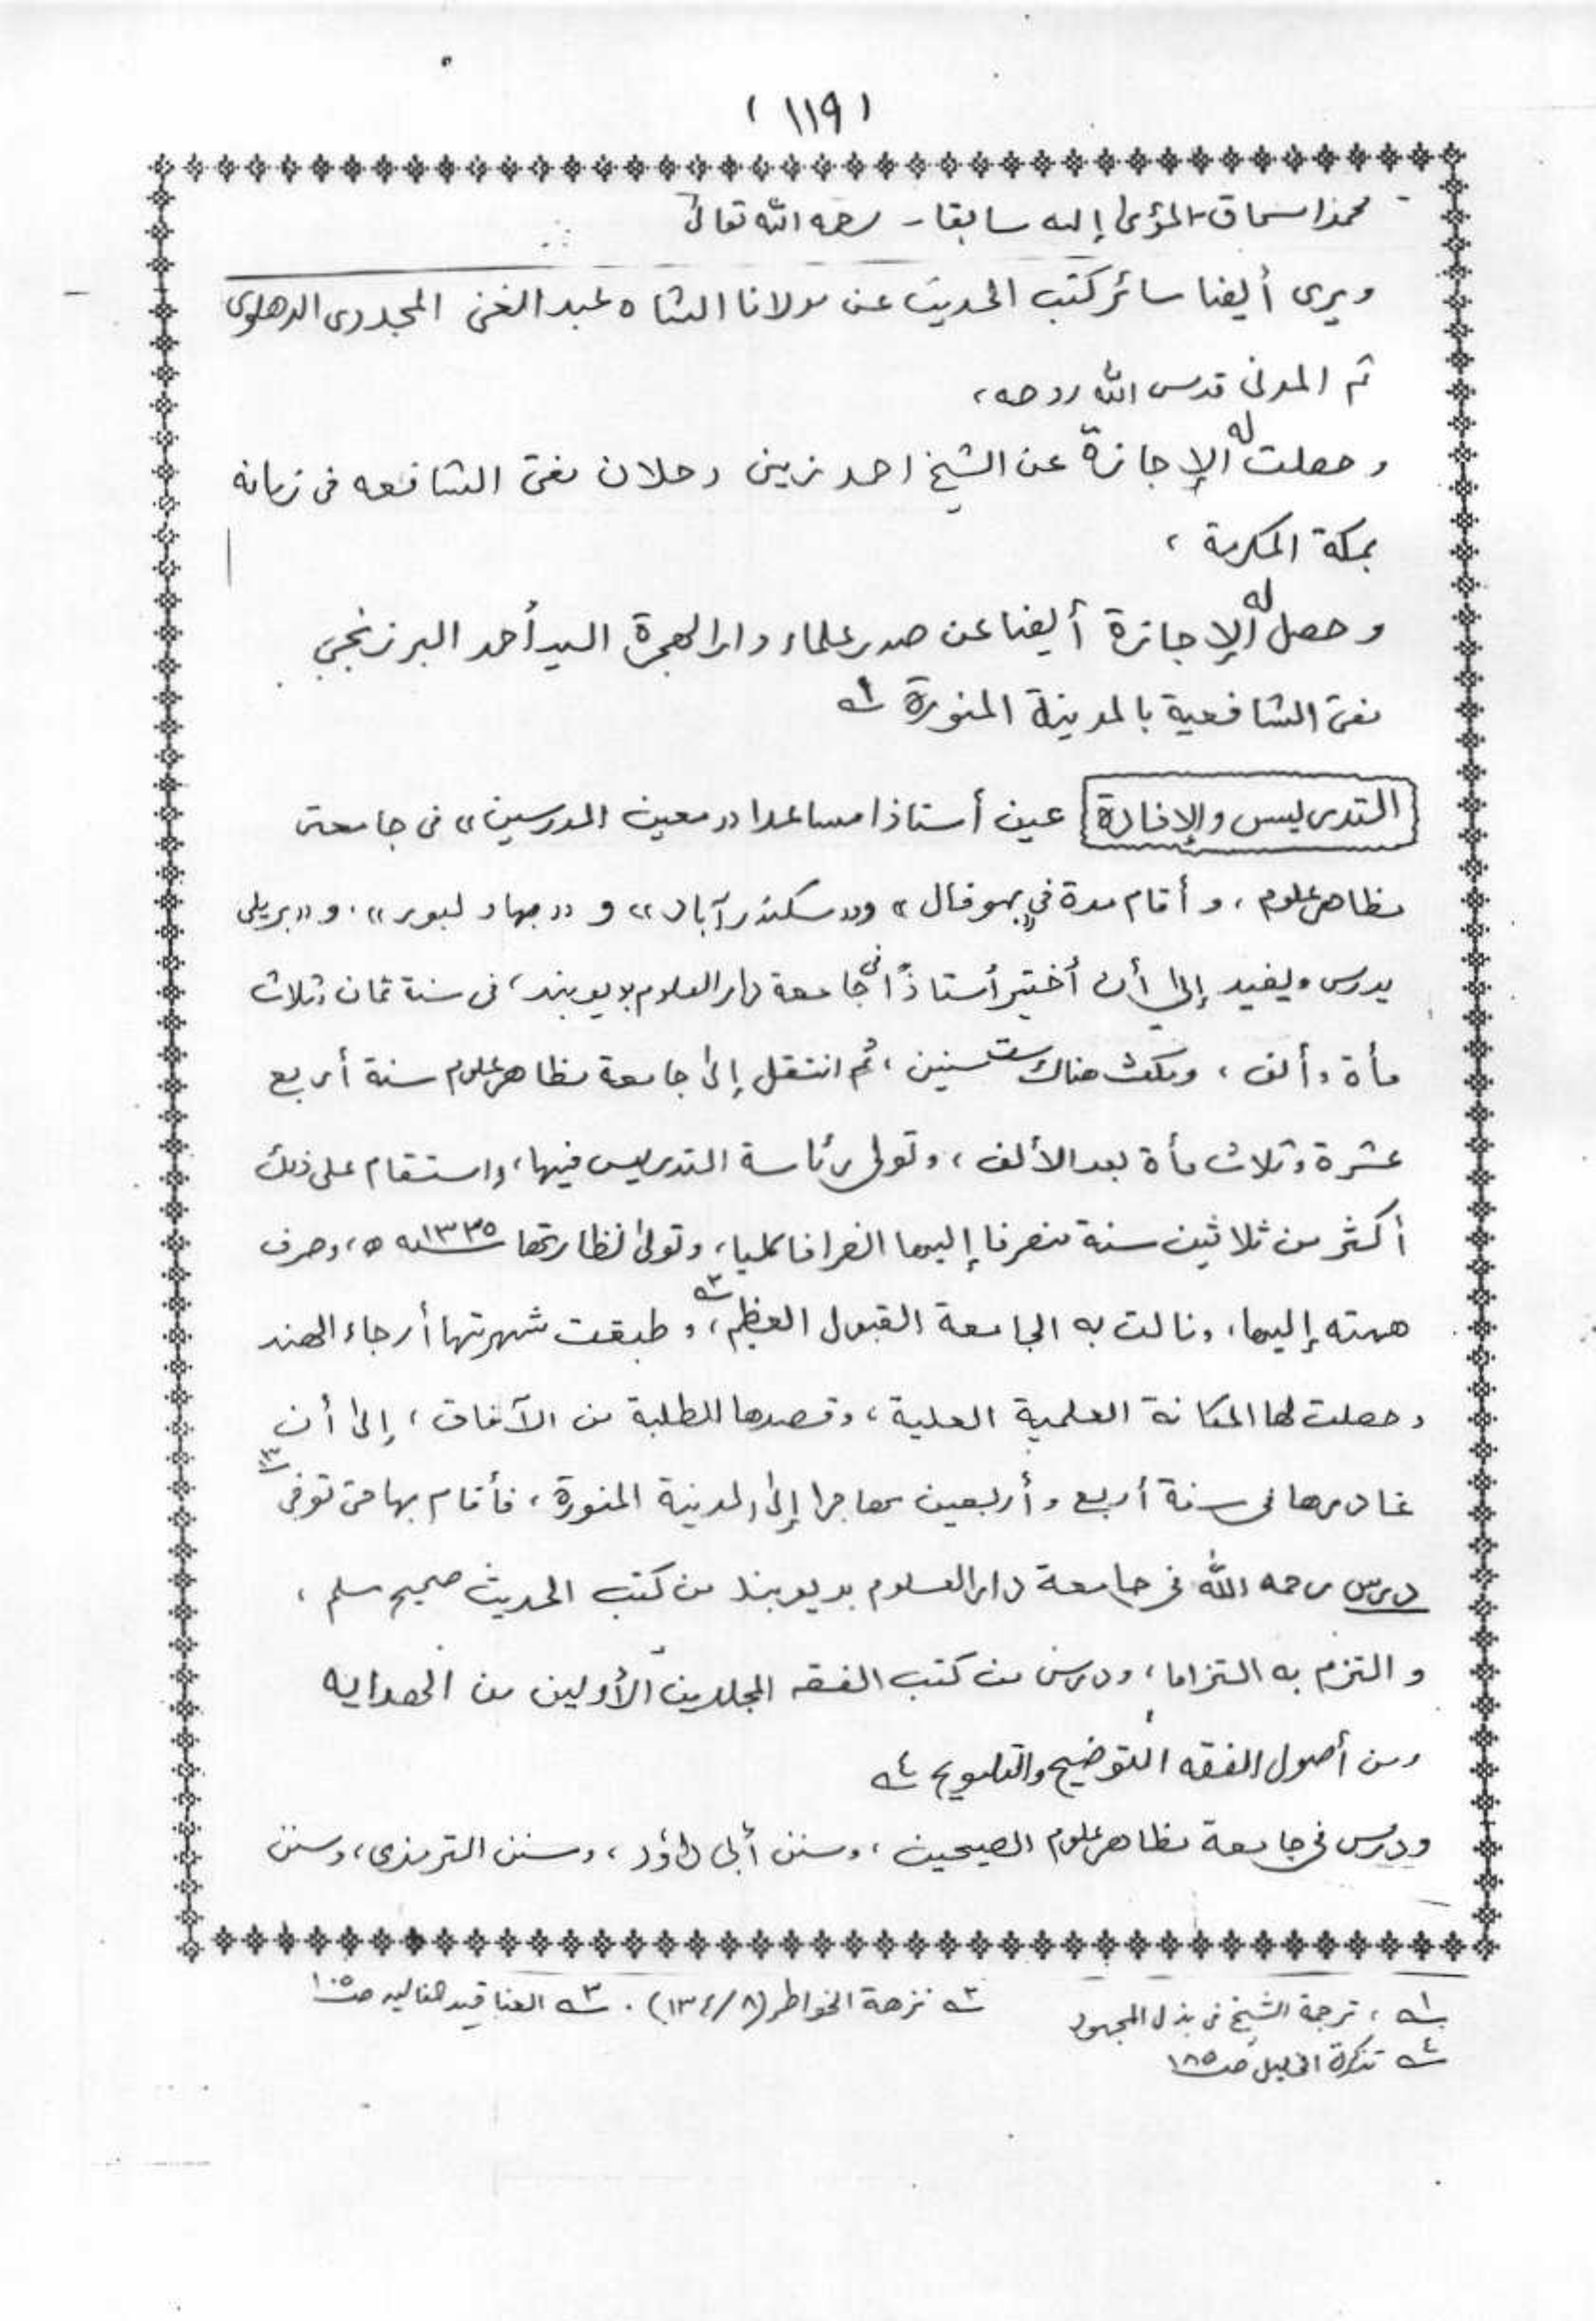 ( ١١٩ )
محمد اسحاق - المؤمى إليه سابقا - رحمه الله تعالى
ويروى أيضا سائر كتب الحديث عن مولانا الشاه عبد الغنى المجددى الدهلوى
ثم المدنى قدس الله روحه ،
وحصلت له الإجازة عن الشيخ احمد زينى دحلان مفتى الشافعه فى زمانه
بمكة المكرمة ،
وحصل له الإجازة أيضا عن صدر علماء دار الهجرة السيد أحمد البرزنجي
مفتى الشافعية بالمدينة المنورة ١ـه
التدريس والإفادة عين أستاذا مساعدا «معين المدرسين» فى جامعتى
مظاهر علوم ، وأقام مدة في «بهوفال» و«سكندر آباد» و «بهاولبور» . و«بريلى
يدرس ويفيد إلى أن أختير أستاذًا فى جامعة دار العلوم بديوبند ، فى سنة ثمان وثلاث
مأة وألف ، ومكث هناك ست سنين ، ثم انتقل إلى جامعة مظاهر علوم سنة أربع
عشرة وثلاث مأة بعد الألف ، وتولى رئاسة التدريس فيها ، واستقام على ذلك
أكثر من ثلاثين سنة منصرفا إليها انصرافا كليا ، وتولى نظارتها سنه ١٣٣٥ ه ، وصرف
همته إليها ، ونالت به الجامعة القبول العظيم ٢ـه ، وطبقت شهرتها أرجاء الهند
وحصلت لها المكانة العلمية العلية ، وقصدها الطلبة من الآفاق ، إلى أن
غادرها فى سنة أربع وأربعين مهاجرا إلى المدينة المنورة ، فأقام بها حتى توفى ٣ـه
درس رحمه الله فى جامعة دار العلوم بديوبند من كتب الحديث صحيح مسلم ،
والتزم به التزاما ، ودرس من كتب الفقه المجلدين الأولين من الهدايه
ومن أصول الفقه التوضيح والتلويح ٤ـه
ودرس فى جامعة مظاهر علوم الصحيحين ، وسنن أبى داؤد ، وسنن الترمذى ، وسنن
١ـه ، ترجمة الشيخ فى بذل المجهود ٢ـه نزهة الخواطر (٨/١٣٤) . ٣ـه العناقيد الغاليه صـ١٠٥
٤ـه تذكرة الخليل صـ١٨٥